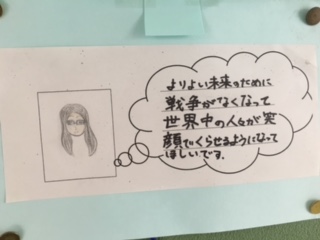 よりよい未来のために
戦争がなくなって
世界中の人々が笑
顔でくらせるようになって
ほしいです。